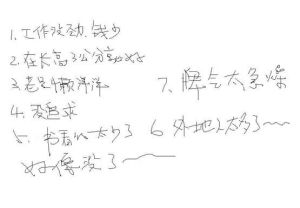 1.工作没劲.钱少
2.在长高3公分就好
3.老是懒洋洋
4.爱追求
5.书看的太少了
6 外地人太多了~~
7、脾气太急燥
好像没了~~~